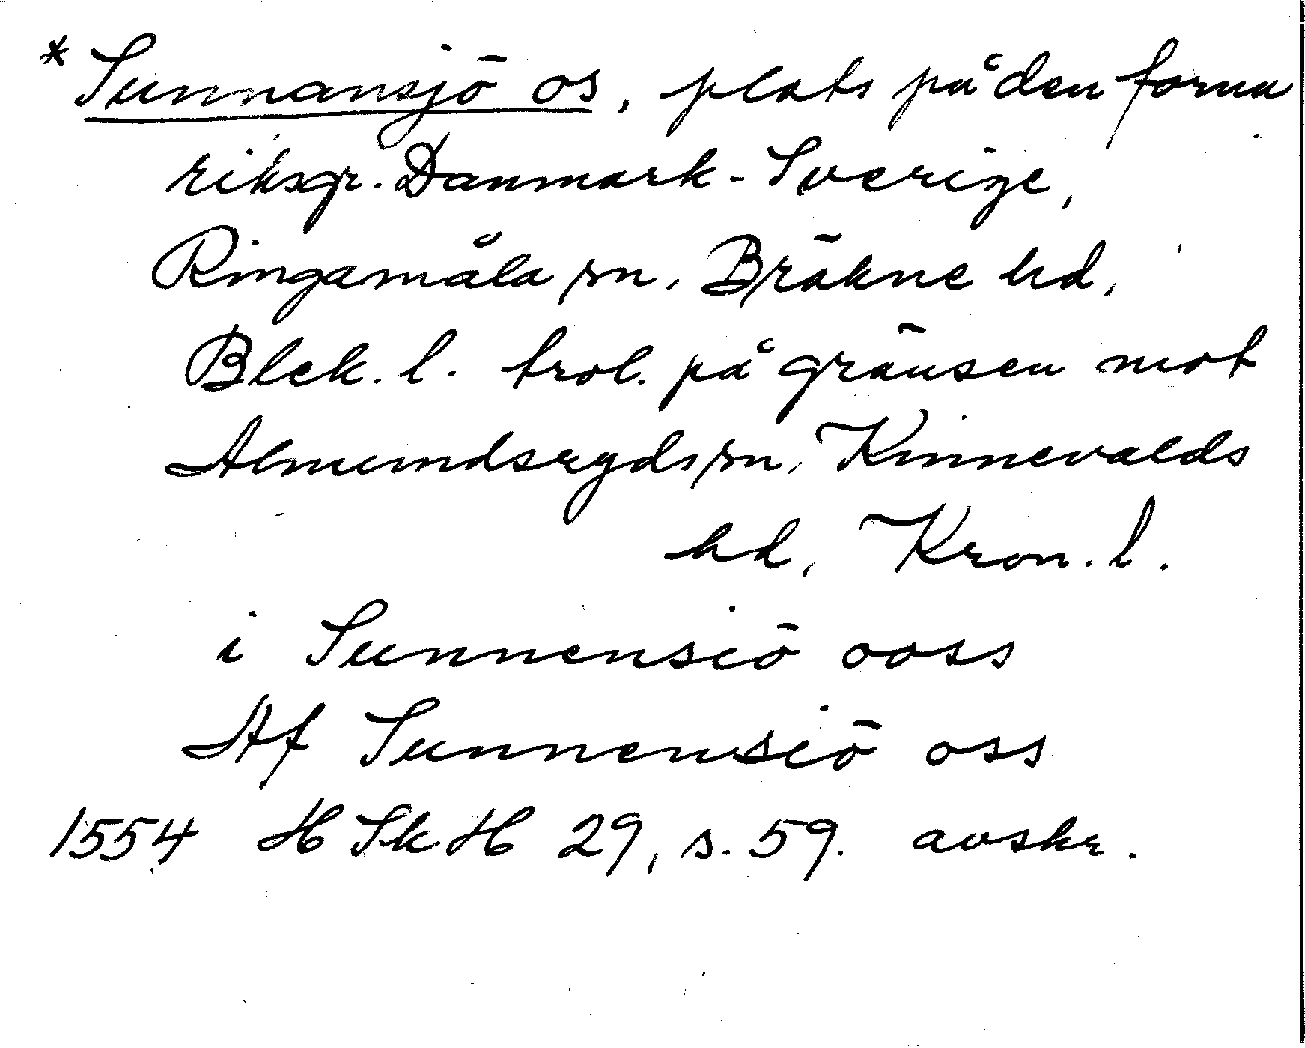 * Sunnansjö os, plats på den forna
riksgr. Danmark - Sverige,
Ringamåla sn, Bräkne hd,
Blek. l. trol. på gränsen mot
Almundsryds sn, Kinnevalds
hd, Kron. l.
i Sunnensiö ooss
Af Sunnensiö oss
1554 HSkH 29, s. 59. avskr.